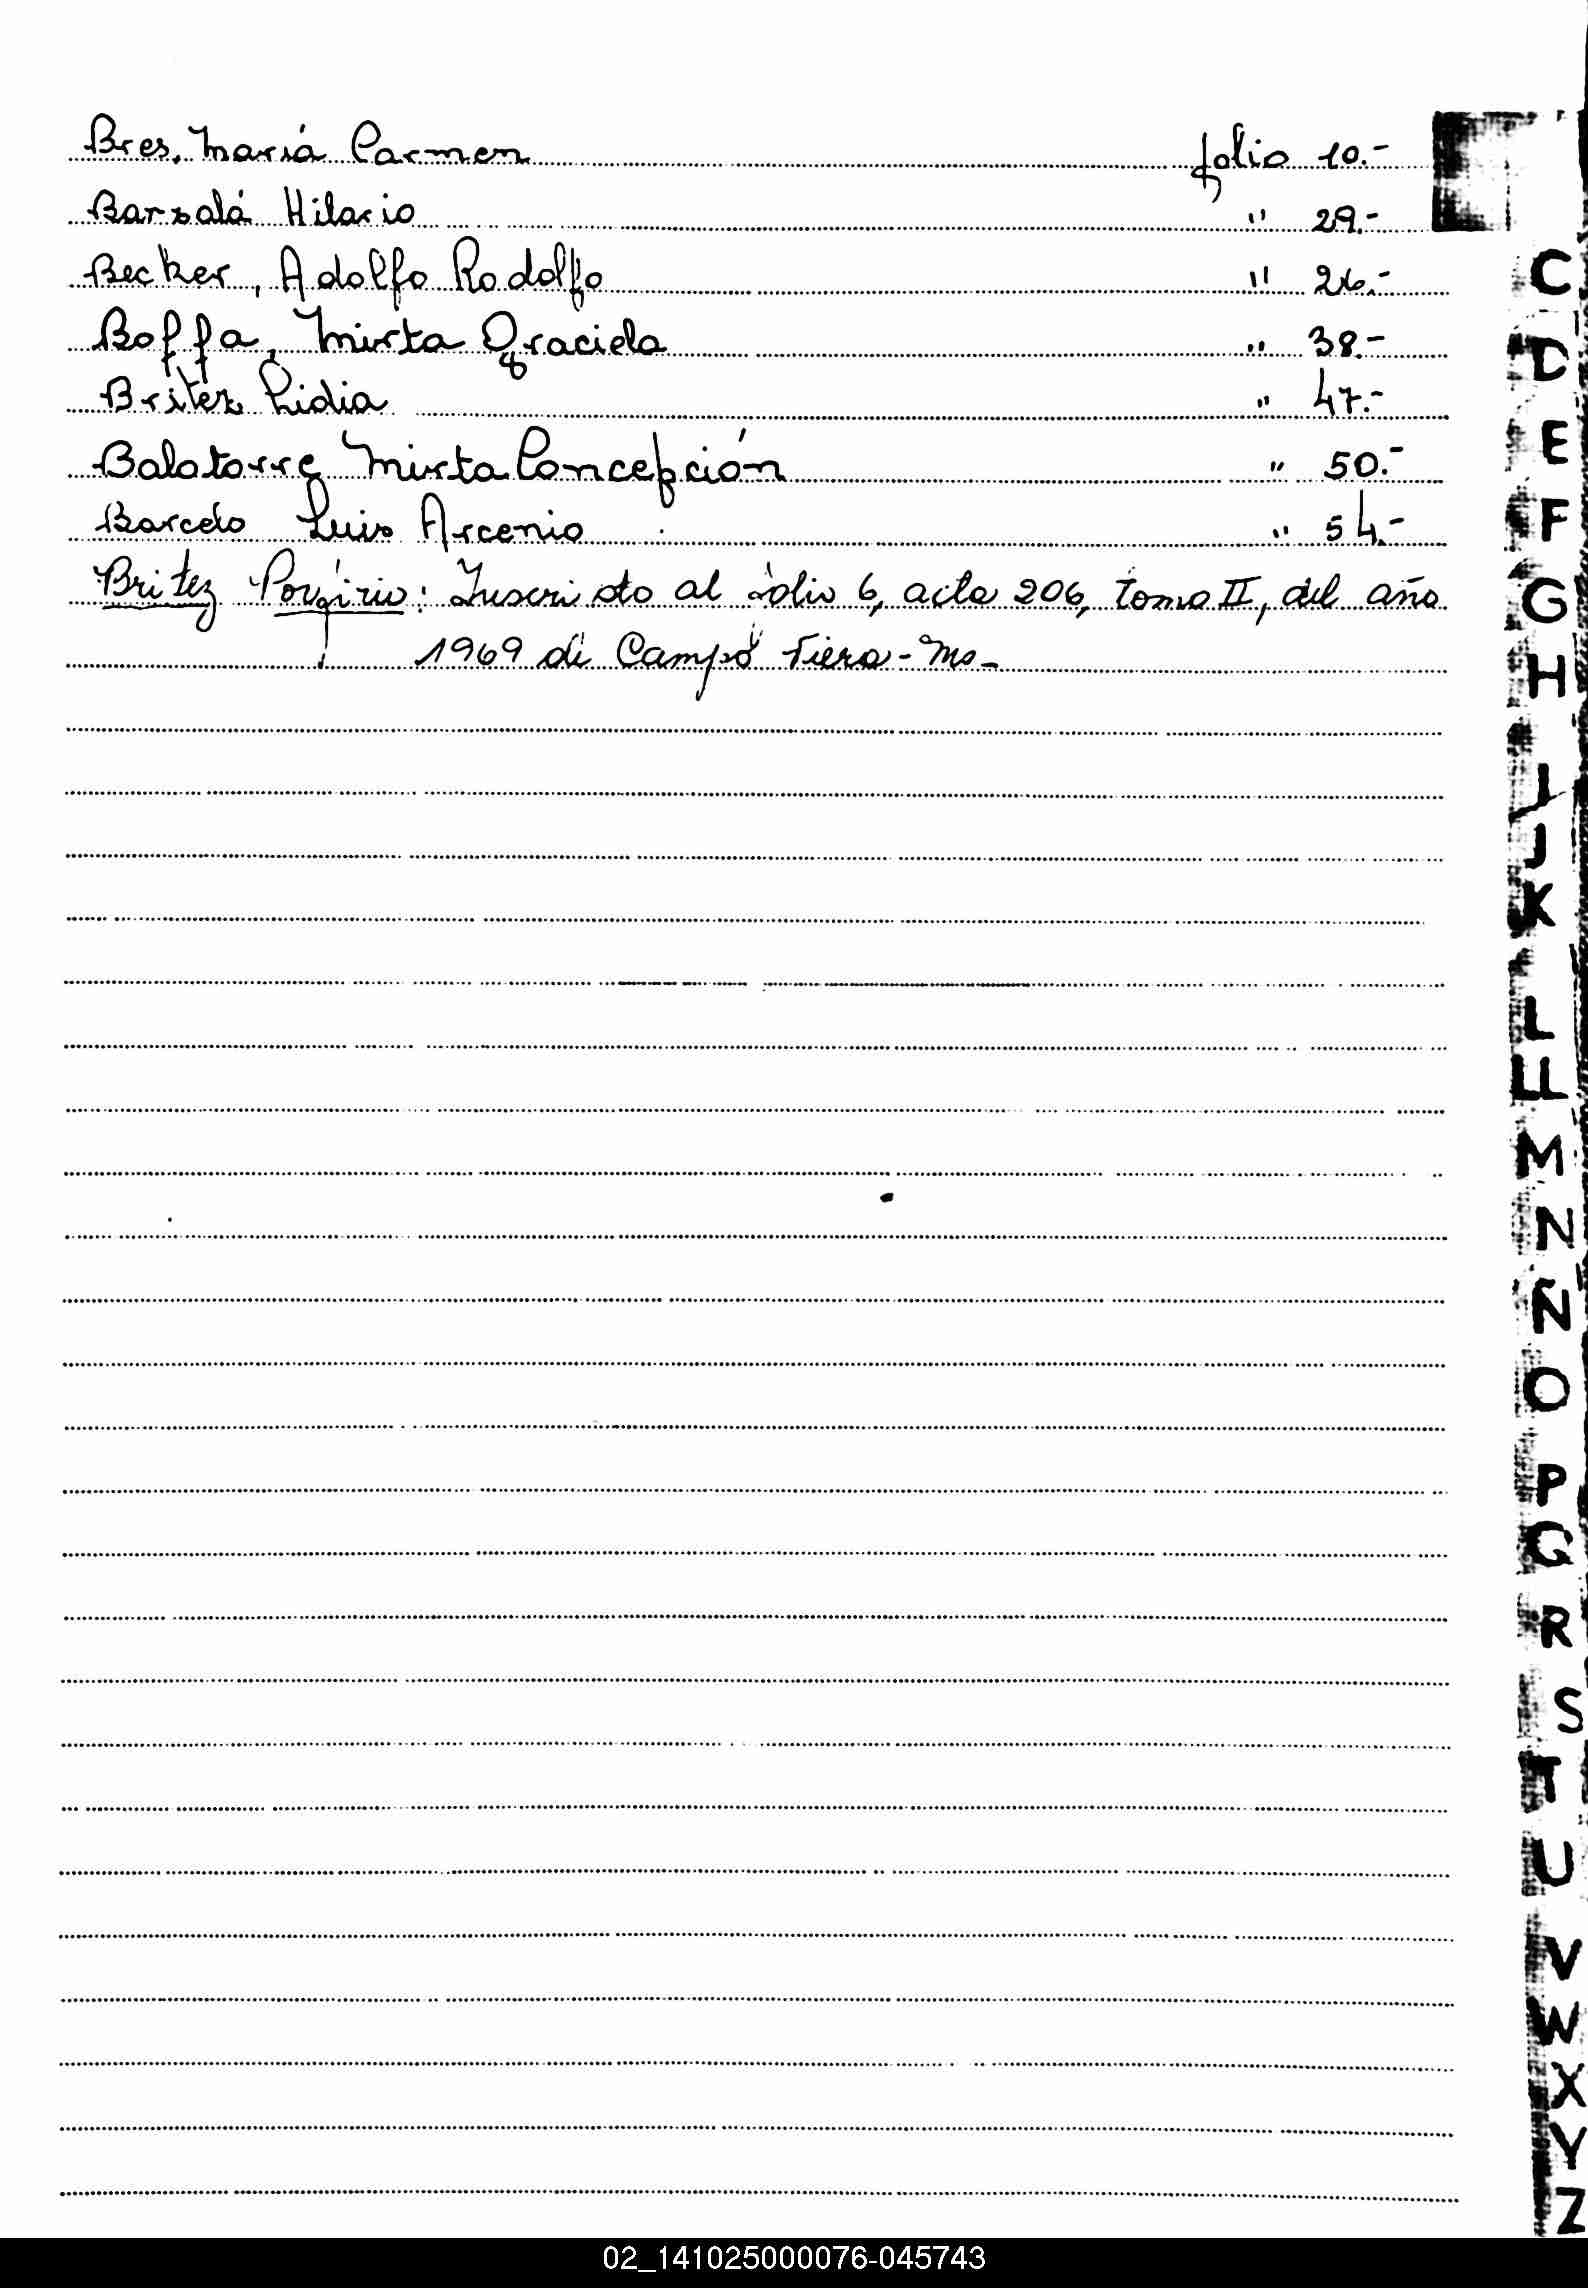 Bres, María Carmen folio 10.-
Barzalá Hilario " 29.-
Becker, Adolfo Rodolfo " 26.-
Boffa, Mirta Graciela " 38.-
Britez Lidia " 47.-
Balatorre Mirta Concepción " 50.-
Barcelo Luis Arcenio " 54.-
Britez Porfirio: Inscripto al folio 6, acta 206, tomo II, del año
1969 de Campo Viera - Ms-
C
D
E
F
G
H
I
J
K
L
LL
M
N
Ñ
O
P
Q
R
S
T
U
V
W
X
Y
Z
02_141025000076-045743